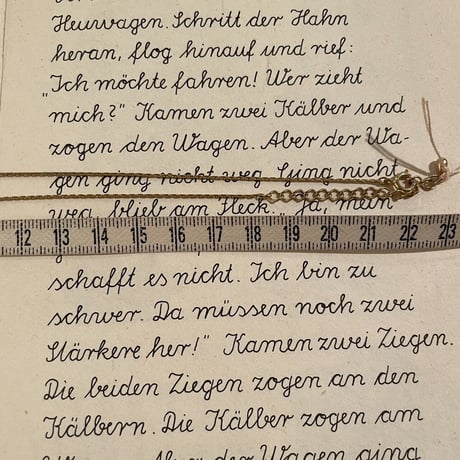 Heuwagen. Schritt der Hahn
heran, flog hinauf und rief:
„Ich möchte fahren! Wer zieht
mich?" Kamen zwei Kälber und
zogen den Wagen. Aber der Wa-
gen ging nicht weg. Ging nicht
weg, blieb am Fleck. „Ja, mein
12 13 14 15 16 17 18 19 20 21 22 23
schafft es nicht. Ich bin zu
schwer. Da müssen noch zwei
Stärkere her!" Kamen zwei Ziegen.
Die beiden Ziegen zogen an den
Kälbern. Die Kälber zogen am
Wagen. Aber der Wagen ging